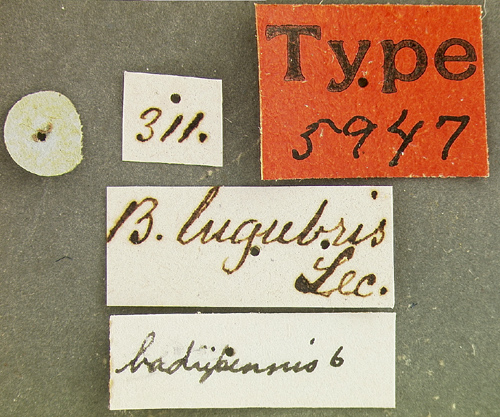 311.
Type
5947
B. lugubris
Lec.
badiipennis 6